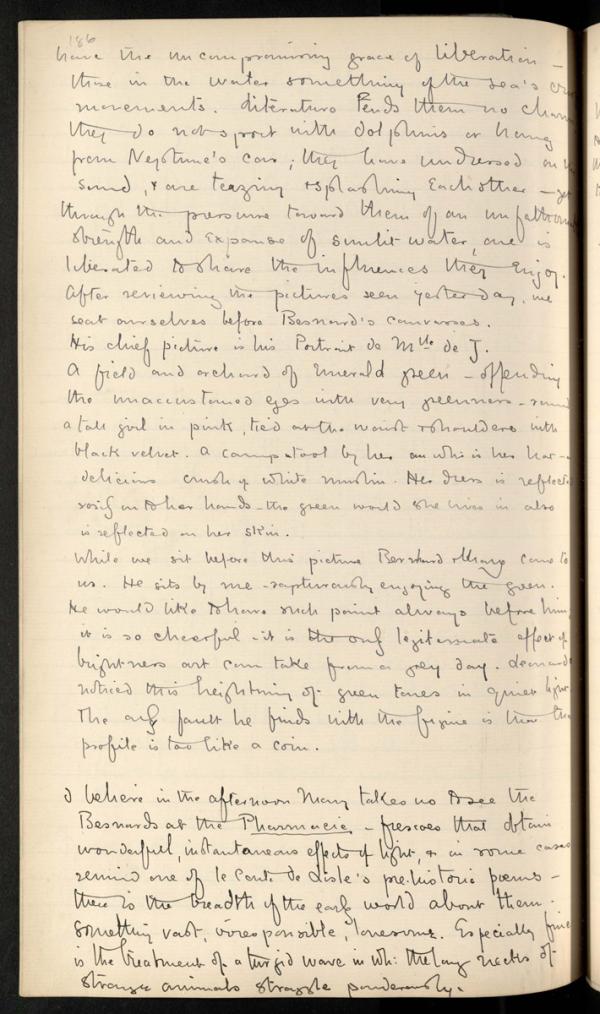 186
have the uncompromising grace of liberation –
those in the water something of the sea's own
movements. Literature lends them no charm
they do not sport with dolphins or hang
from Neptune's car; they have undressed on
sand, & are teazing & splashing each other – yet
through the pressure toward them of an unfathomed
strength and expanse of sunlit water, one is
liberated to share the influences they enjoy.
After reviewing the pictures seen yesterday, we
seat ourselves before Besnard's canvases.
His chief picture is his Portrait de Mlle de J.
A field and orchard of emerald green – offending
the unaccustomed eyes with very greenness – round
a tall girl in pink, tied at the waist & shoulders with
black velvet. A campstool by her on wh: is her hat – a
delicious crush of white muslin. Her dress is reflected
rosily on to her hands – the green world she lives in also
is reflected on her skin.
While we sit before this picture Bernhard & Mary come to
us. He sits by me – rapturously enjoying the green.
He would like to have such paint always before him,
it is so cheerful – it is the only legitimate effect of
brightness art can take from a grey day. Leonardo
noticed this heightning of green tones in quiet light.
The only fault he finds with the figure is that the
profile is too like a coin.
I believe in the afternoon Mary takes us to see the
Besnards at the Pharmacie, – frescoes that obtain
wonderful, instantaneous effects of light, & in some cases
remind one of le Conte de Lisle's pre-historic poems –
there is the breadth of the early world about them –
something vast, irresponsible, lonesome. Especially fine
is the treatment of a turgid wave in wh: the long necks of
strange animals straggle ponderously.